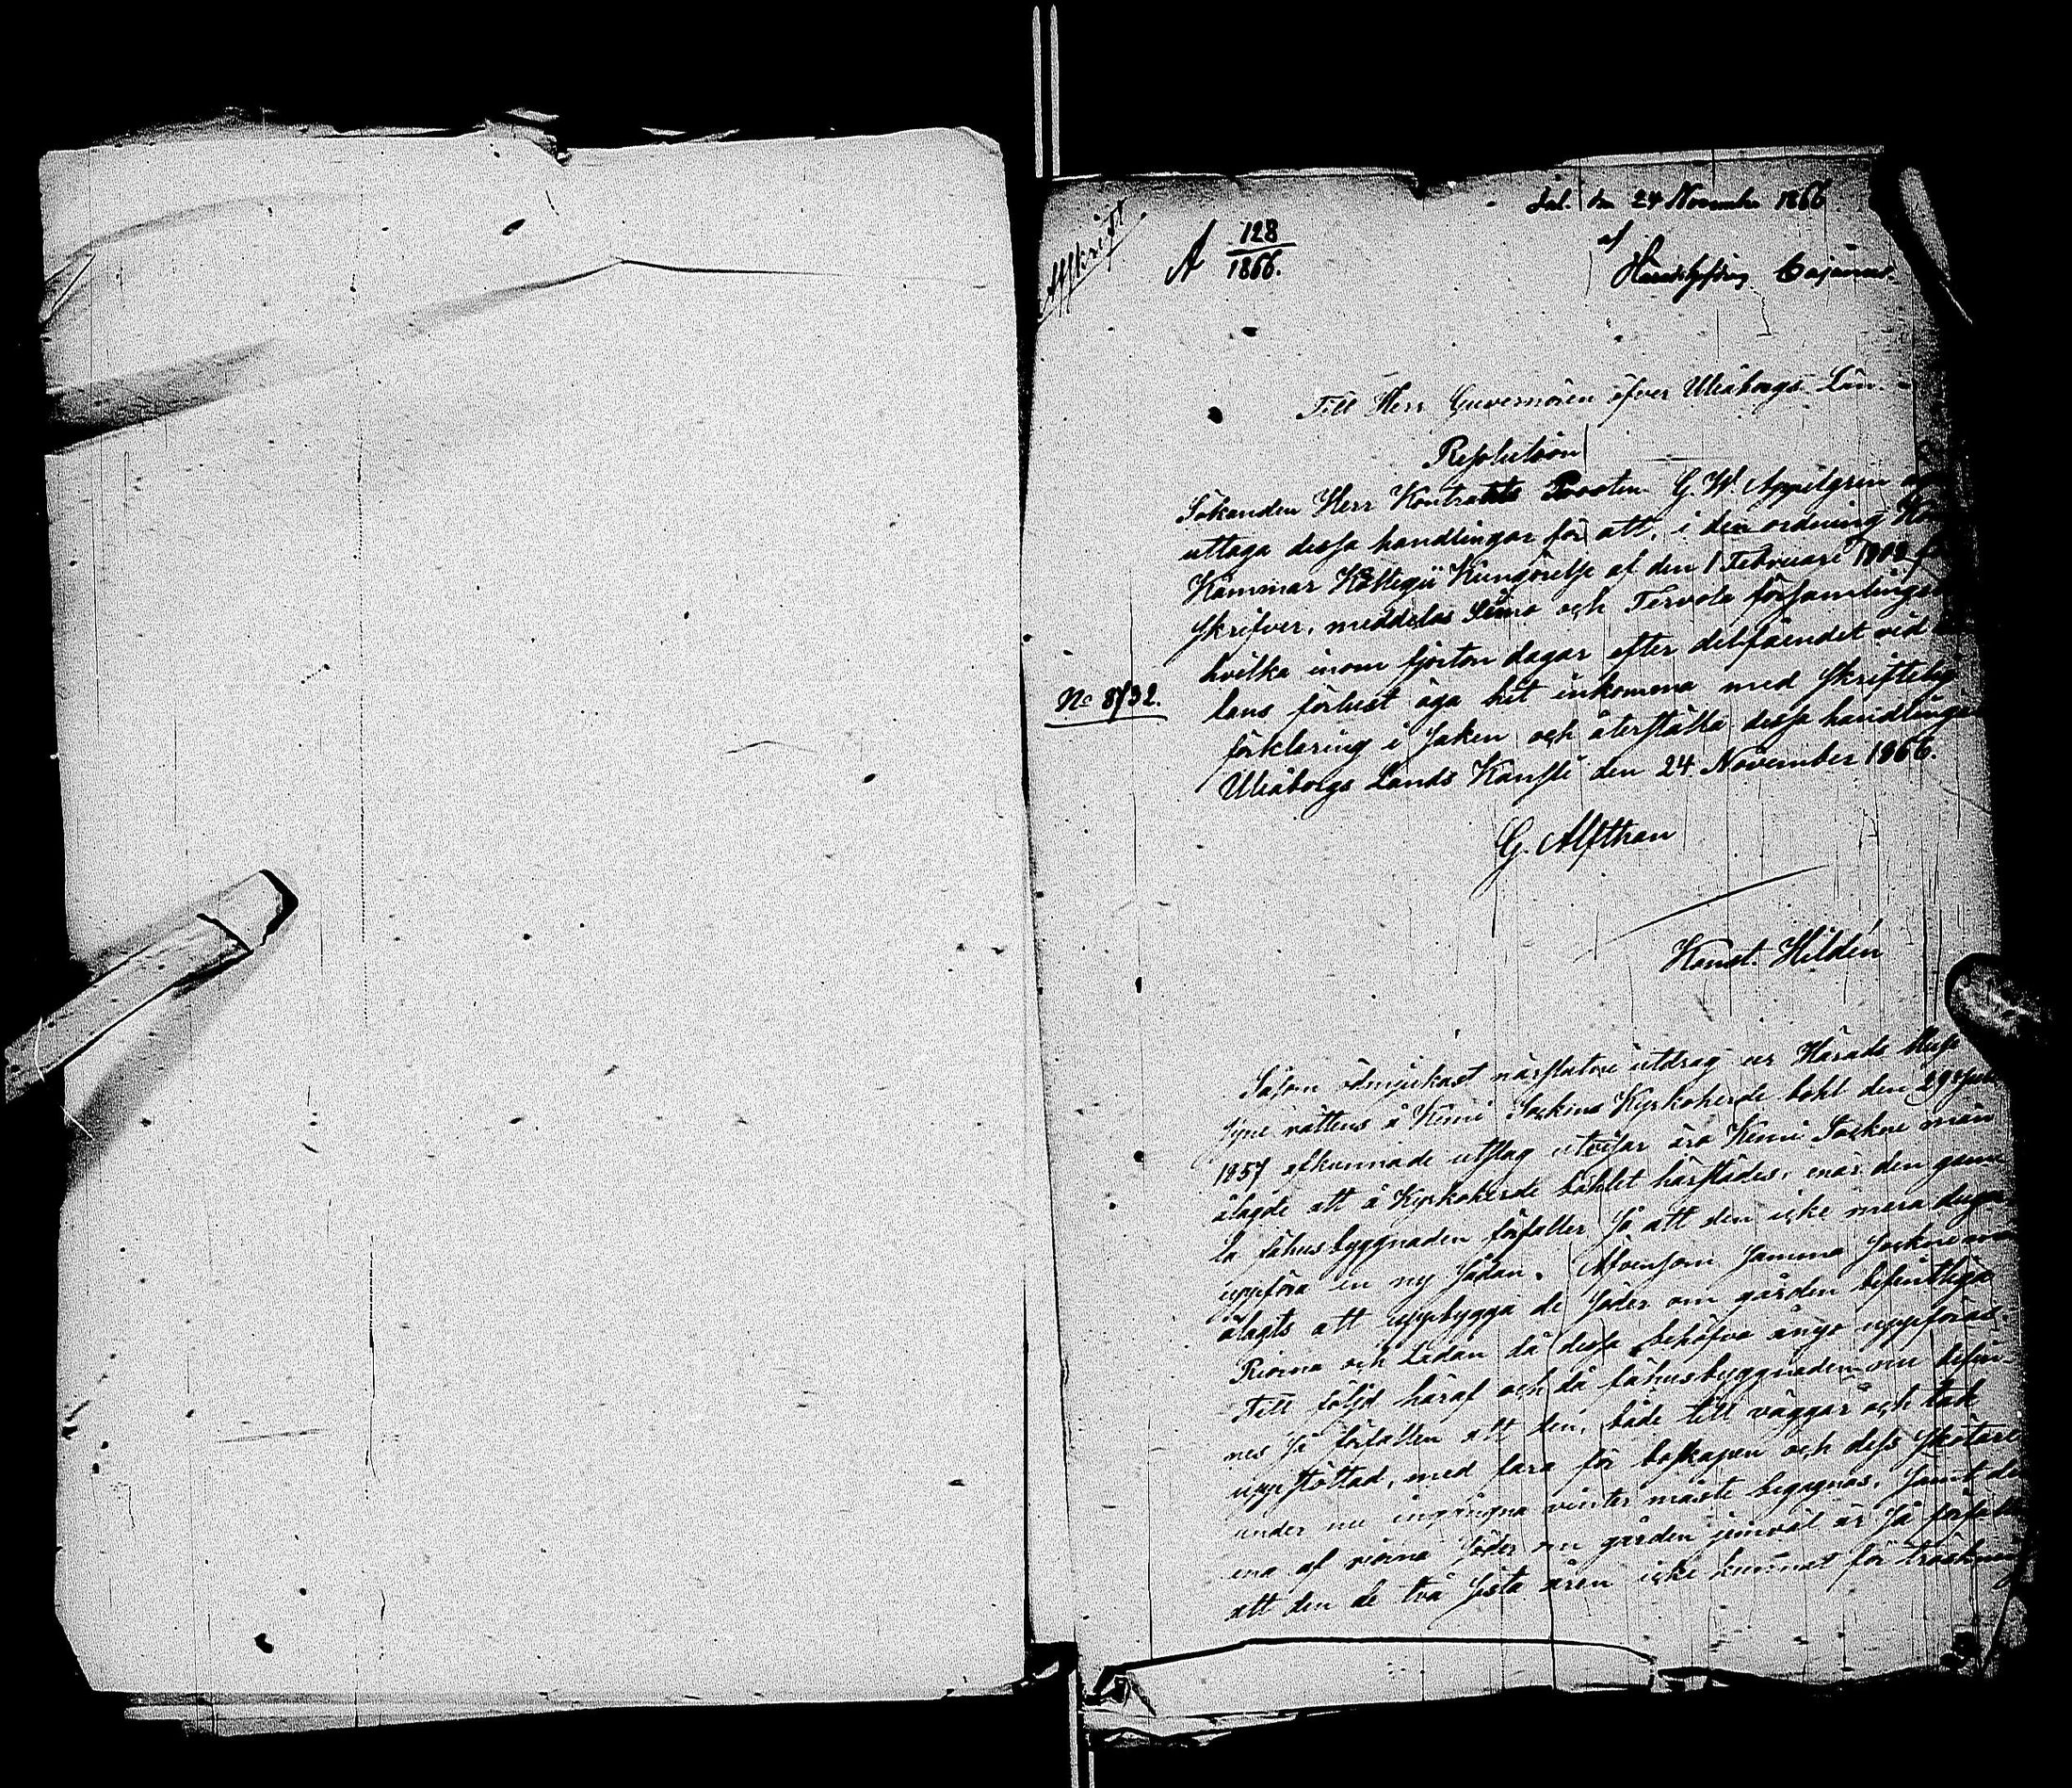 Afskrift
A 128/1866.
Inl. den 24 November 1866
af
Cajanus
Till Herr Guvernören öfver Uleåborgs Län.
Resolution
Sökanden Herr Kontrakts Prosten G. W. Appelgren
uttaga dessa handlingar för att, i den ordning
Kammar Kollegii Kungörelse af den 1 Februari
skrifver, meddelas Simo och Tervola församlings
hvilka inom fjorton dagar efter delfåendet vid
No 8732.
lans förlust äga hit inkomma med skriftelig
förklaring i saken och återställa dessa handlingar
Uleåborgs Lands Kansli den 24 November 1866.
G. Alfthan
Konst. Hildén
Såsom ödmjukast närslutne utdrag ur Härads Husesyns
syne rättens å Kemi Sockens Kyrkoherde bohl den 29
1857 afkunnade utslag utvisar äro Kemi Sockne män
ålagde att å Kyrkoherde bohlet härstädes, när den gam
la fähusbyggnaden förfaller så att den icke mera duger
uppföra en ny sådan. Äfvensom samma Sockne män
ålagts att uppbygga de söder om gården befintliga
Riorna och Ladan då dessa behöfva ånyo uppföras.
Till följd häraf och då fähusbyggnaden nu befin-
nes så förfallen att den, både till väggar och tak
uppstöttad, med fara för boskapen och dess skötare
under nu ingångna vinter måste begagnas, samt den
ena af riorna söder om gården jemväl är så förfallen
att den de två sista åren icke kunnat för tröskning